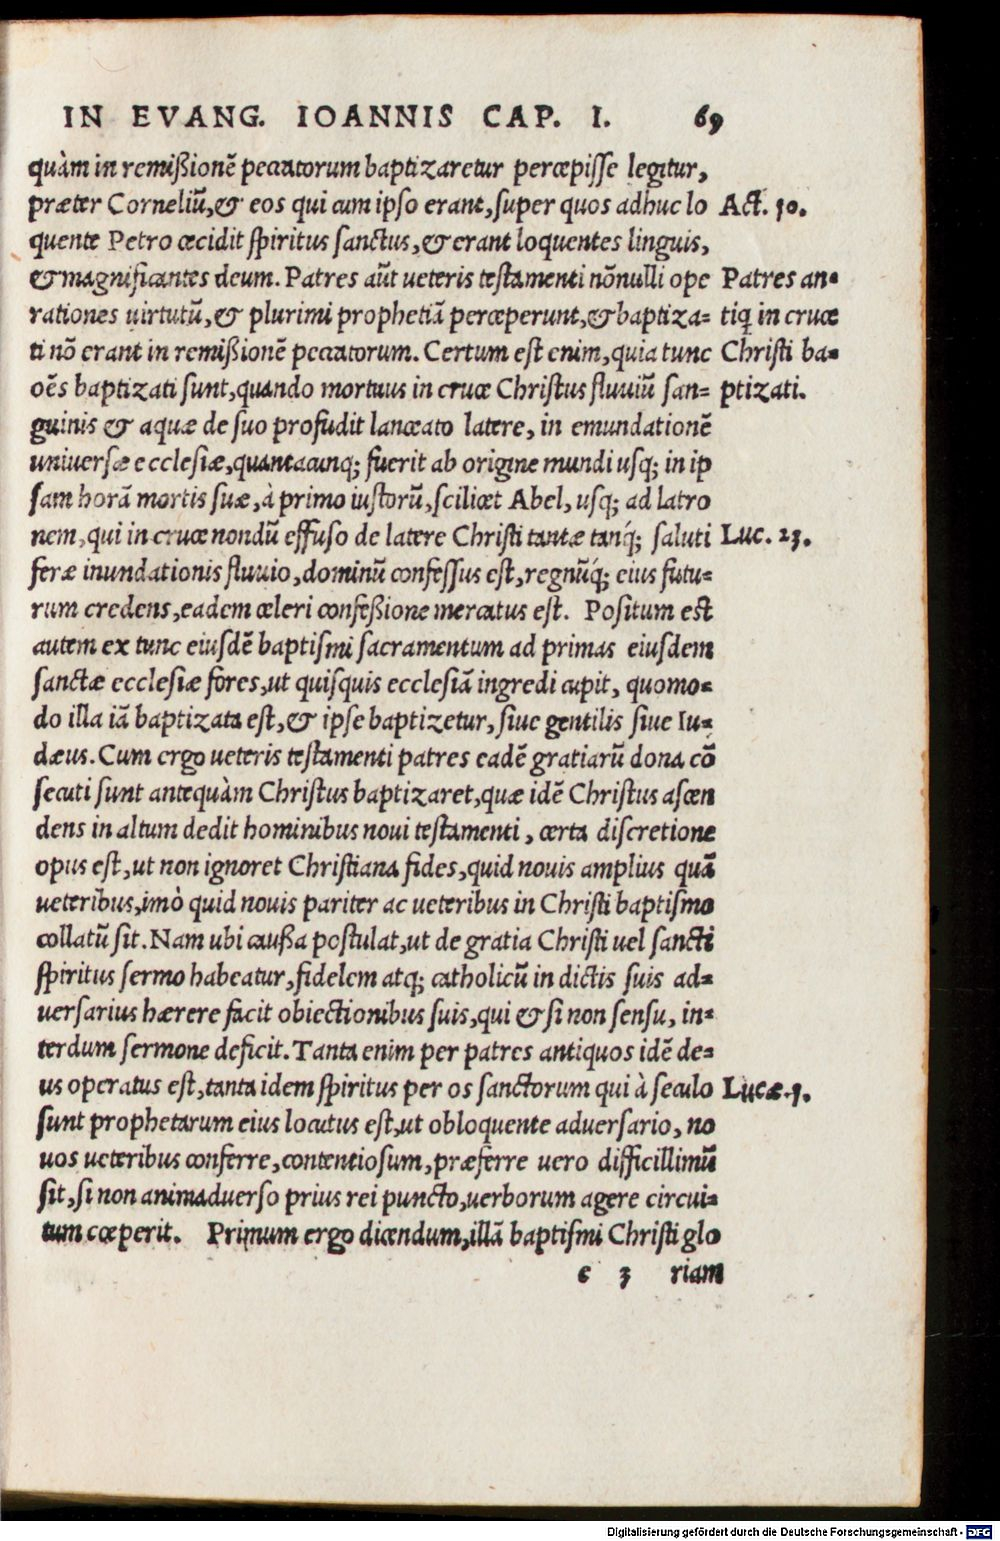 IN EVANG. IOANNIS CAP. I. 69
quàm in remißionē peccatorum baptizaretur percepisse legitur,
præter Corneliū,& eos qui cum ipso erant,super quos adhuc lo Act. 10.
quente Petro cecidit spiritus sanctus,& erant loquentes linguis,
& magnificantes deum. Patres aūt ueteris testamenti nōnulli ope Patres an-
rationes uirtutū,& plurimi prophetiā perceperunt,& baptiza= tiq; in cruce
ti nō erant in remißionē peccatorum. Certum est enim,quia tunc Christi ba-
oēs baptizati sunt,quando mortuus in cruce Christus fluuiū san= ptizati.
guinis & aquæ de suo profudit lanceato latere, in emundationē
uniuersæ ecclesiæ,quantacunq; fuerit ab origine mundi usq; in ip
sam horā mortis suæ, à primo iustorū,scilicet Abel, usq; ad latro
nem,qui in cruce nondū effuso de latere Christi tantæ tanq́; saluti Luc. 23.
feræ inundationis fluuio,dominū confessus est,regnūq́; eius futu-
rum credens,eadem celeri confeßione mercatus est. Positum est
autem ex tunc eiusdē baptismi sacramentum ad primas eiusdem
sanctæ ecclesiæ fores,ut quisquis ecclesiā ingredi cupit, quomo-
do illa iā baptizata est,& ipse baptizetur,siue gentilis siue Iu-
dæus. Cum ergo ueteris testamenti patres eadē gratiarū dona cō
secuti sunt antequàm Christus baptizaret,quæ idē Christus ascen
dens in altum dedit hominibus noui testamenti, certa discretione
opus est,ut non ignoret Christiana fides,quid nouis amplius quā
ueteribus,imò quid nouis pariter ac ueteribus in Christi baptismo
collatū sit. Nam ubi caußa postulat,ut de gratia Christi uel sancti
spiritus sermo habeatur,fidelem atq; catholicū in dictis suis ad-
uersarius hærere facit obiectionibus suis,qui & si non sensu, in-
terdum sermone deficit. Tanta enim per patres antiquos idē de-
us operatus est,tanta idem spiritus per os sanctorum qui à seculo Lucæ.1.
sunt prophetarum eius locutus est,ut obloquente aduersario, no
uos ueteribus conferre,contentiosum,præferre uero difficillimū
sit,si non animaduerso prius rei puncto,uerborum agere circui-
tum cœperit. Primum ergo dicendum,illā baptismi Christi glo
e 3 riam
Digitalisierung gefördert durch die Deutsche Forschungsgemeinschaft - DFG